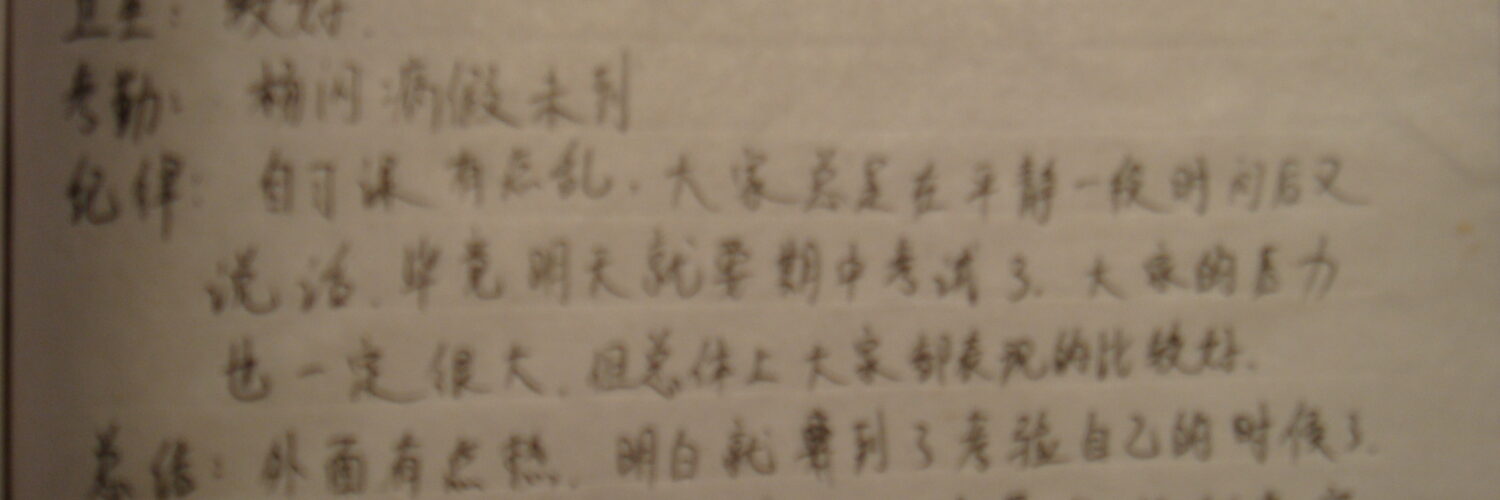 卫生：较好.
考勤： 病假未到
纪律：自习课有点乱.大家总是在平静一段时间后又
说话.毕竟明天就要期中考试了.大家的压力
也一定很大.但总体上大家都表现的比较好.
总结：外面有点热.明白就要到了考验自己的时候了.